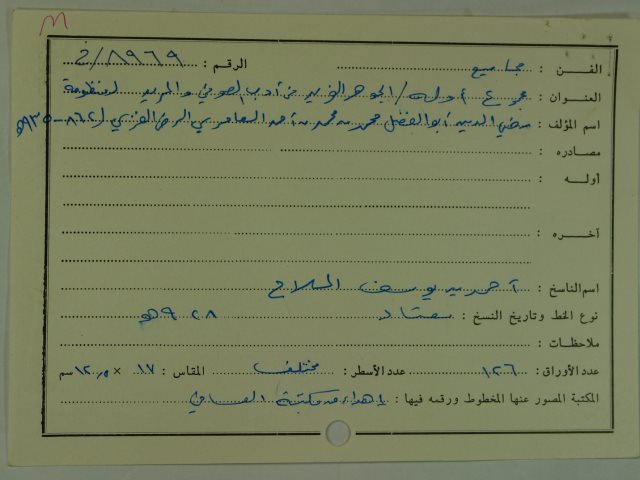 M
الفـن : مجاميع الرقم : ٨٩٦٩/خ
العنـوان : مجموع أوله/ الجوهر الفريد في أدب الصوفي والمريد (منظومة
اسم المؤلف : رضي الدين أبو الفضل محمد بن محمد بن أحمد العامري الغزي (٨٦٢-٩٣٥هـ
مصـادره :
أولـه :
آخـره :
اسم الناسخ : أحمد بن يوسف الملاح
نوع الخط وتاريخ النسخ : معتاد ٩٢٨هـ
ملاحظـات :
عدد الأوراق : ١٢٦ عدد الأسطر : مختلف المقاس : ١٧ × ١٢,٥ سم
المكتبة المصور عنها المخطوط ورقمه فيها : إهداء من مكتبة